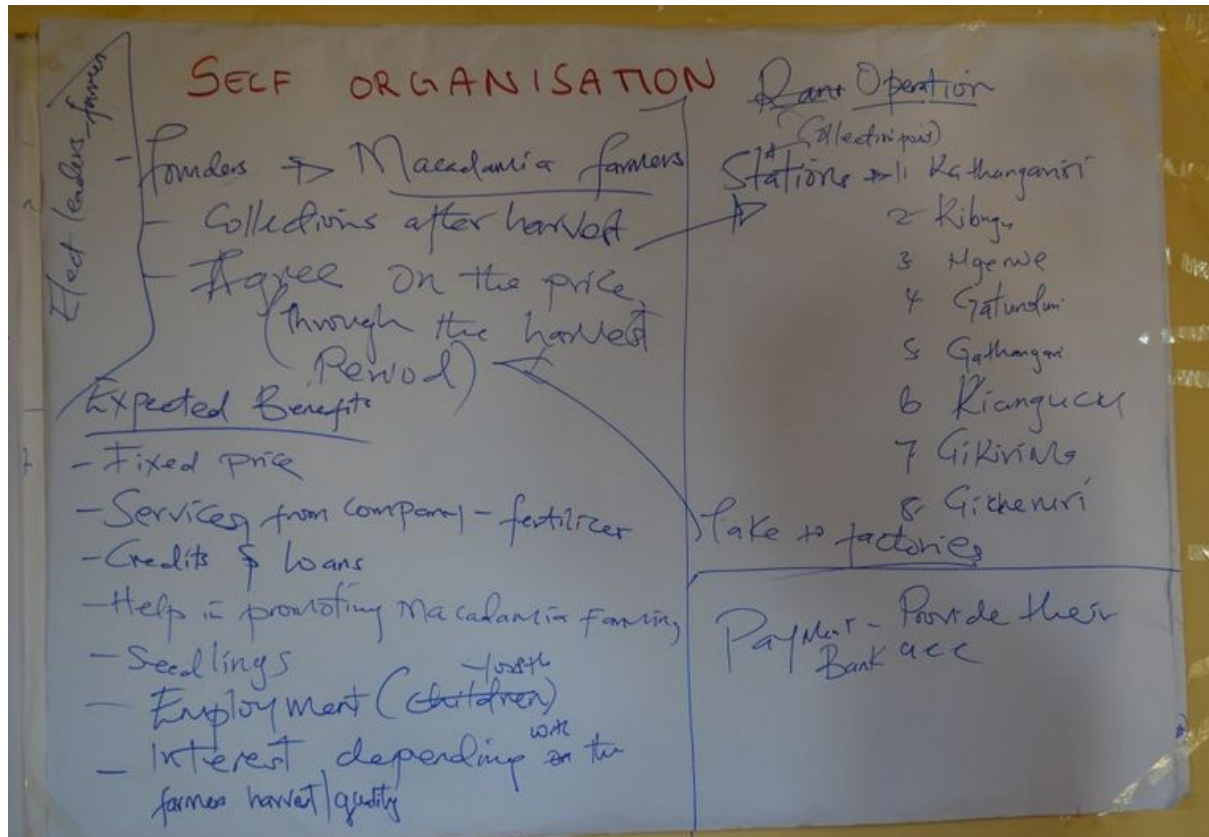 SELF ORGANISATION
Elect leaders - farmers
- founders → Macadamia farmers
- Collections after harvest
- Agree on the price
(through the harvest
Period)
Expected Benefits
- Fixed price
- Services from company - fertilizer
- Credits & loans
- Help in promoting Macadamia Farming
- Seedlings
- youth
- Employment (children)
with
- Interest depending on the
farmers harvest/quality
Operation
(Collection point)
Stations → 1 Kathanganiri
2 Kibugu
3 Ngerwe
4 Gatunduri
5 Gathangari
6 Kiangucu
7 Gikirima
8 Gicheruri
Take to factories
Payment - Provide their
Bank acc